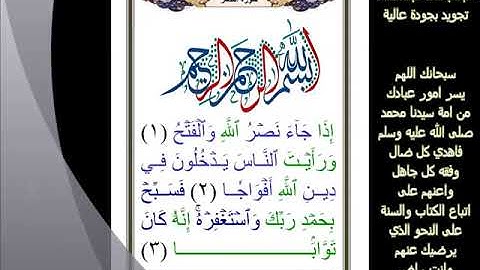 سورة النصر
بسم الله الرحمن الرحيم
إِذَا جَآءَ نَصْرُ ٱللَّهِ وَٱلْفَتْحُ (١)
وَرَأَيْتَ ٱلنَّاسَ يَدْخُلُونَ فِى
دِينِ ٱللَّهِ أَفْوَاجًا (٢) فَسَبِّحْ
بِحَمْدِ رَبِّكَ وَٱسْتَغْفِرْهُ ۚ إِنَّهُۥ كَانَ
تَوَّابًۢا (٣)
تجويد بجودة عالية
سبحانك اللهم
يسر امور عبادك
من امة سيدنا محمد
صلى الله عليه وسلم
فاهدي كل ضال
وفقه كل جاهل
واعنهم على
اتباع الكتاب والسنة
على النحو الذي
يرضيك عنهم